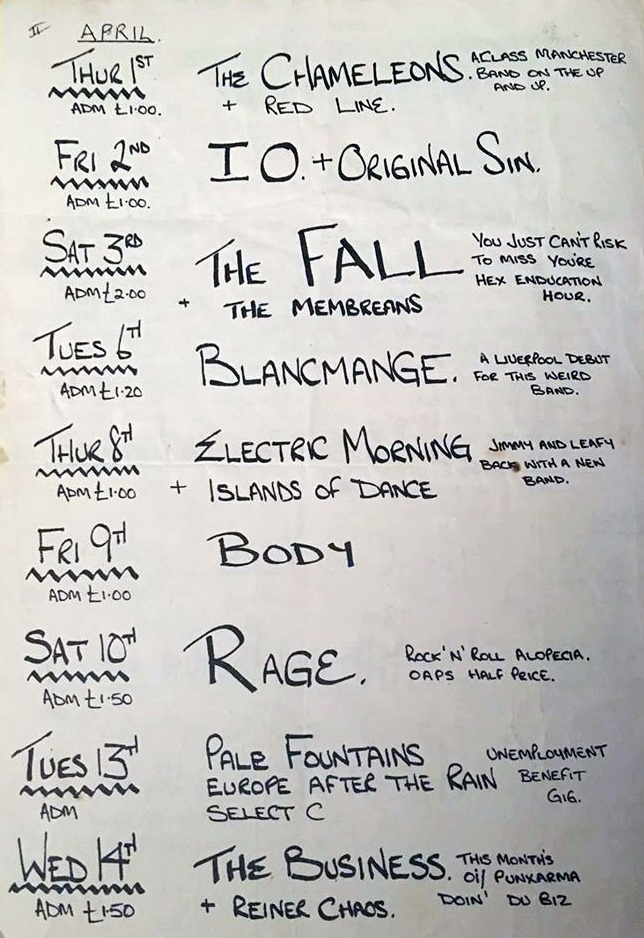 II APRIL.
THUR 1ST THE CHAMELEONS. A CLASS MANCHESTER
BAND ON THE UP
AND UP.
ADM £1·00. + RED LINE.
FRI 2ND I O. + ORIGINAL SIN.
ADM £1·00.
SAT 3RD THE FALL YOU JUST CAN'T RISK
TO MISS YOU'RE
HEX ENDUCATION
HOUR.
ADM £2·00 + THE MEMBREANS
TUES 6TH BLANCMANGE. A LIVERPOOL DEBUT
FOR THIS WEIRD
BAND.
ADM £1·20
THUR 8TH ELECTRIC MORNING JIMMY AND LEAFY
BACK WITH A NEW
BAND.
ADM £1·00 + ISLANDS OF DANCE
FRI 9TH BODY
ADM £1·00
SAT 10TH RAGE. ROCK'N'ROLL ALOPECIA.
OAPS HALF PRICE.
ADM £1·50
TUES 13TH PALE FOUNTAINS UNEMPLOYMENT
EUROPE AFTER THE RAIN BENEFIT
GIG.
ADM SELECT C
WED 14TH THE BUSINESS. THIS MONTH'S
OI/ PUNKARMA
DOIN' DU BIZ
ADM £1·50 + REINER CHAOS.